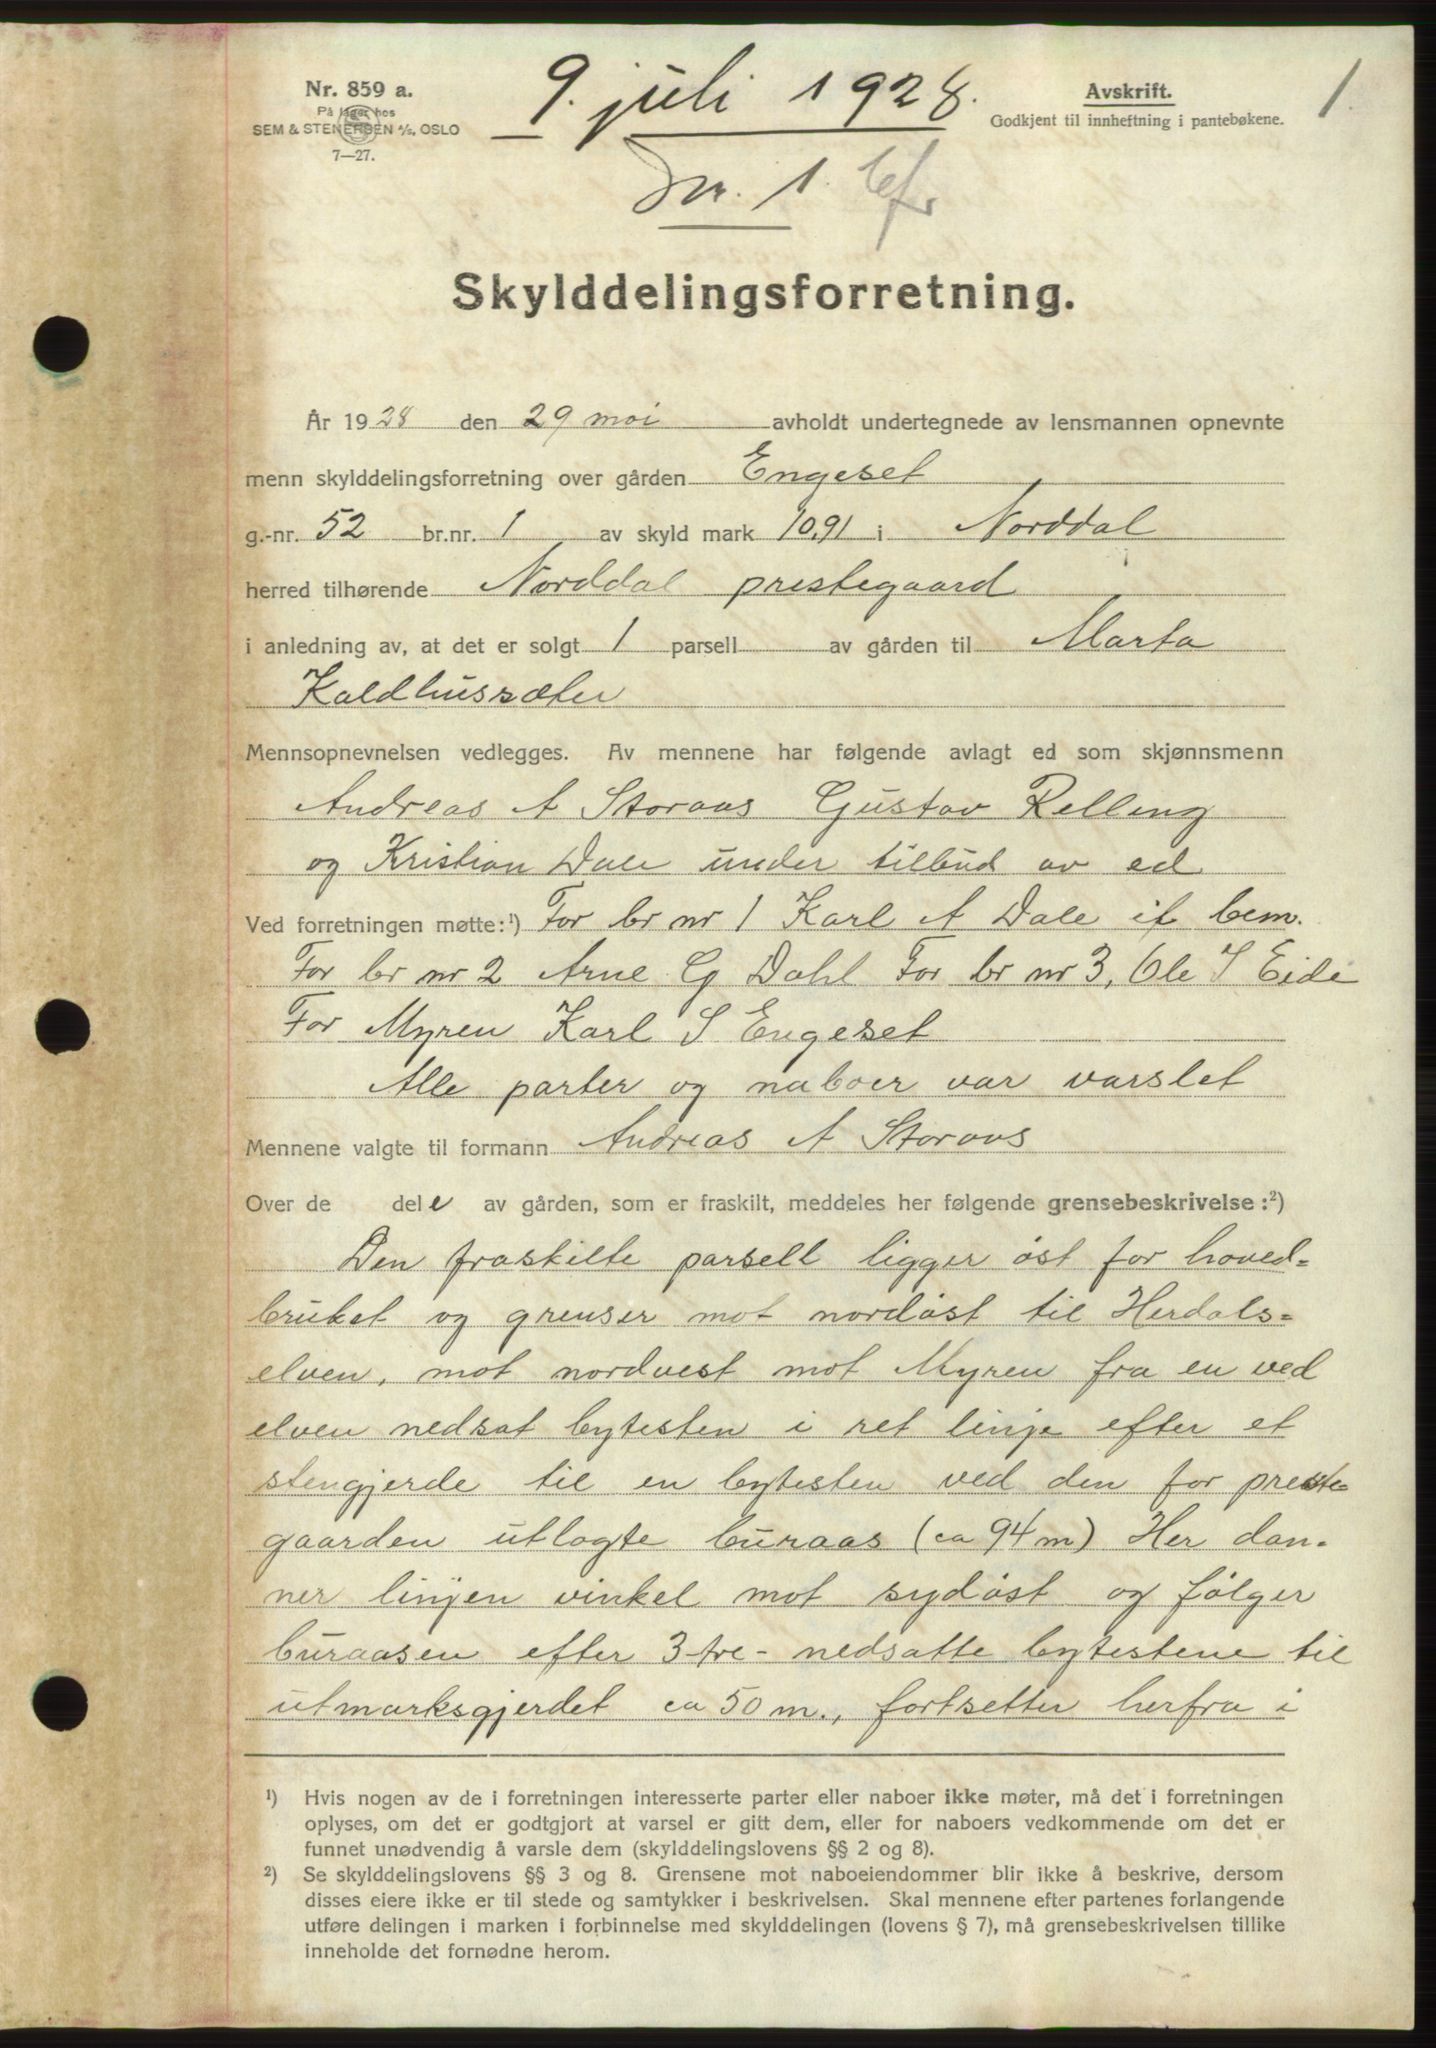 Nr. 859 a.
På lager hos
SEM & STENERSEN A/S, OSLO
7—27.
9. juli 1928.
Avskrift.
Godkjent til innheftning i pantebøkene.
1.
Dnr. 1.
Skylddelingsforretning.
År 1928 den 29 mai avholdt undertegnede av lensmannen opnevnte
menn skylddelingsforretning over gården Engeset
g.-nr. 52 br.nr. 1 av skyld mark 10,91 i Norddal
herred tilhørende Norddal prestegaard
i anledning av, at det er solgt 1 parsell av gården til Marta
Kaldhussæter
Mennsopnevnelsen vedlegges. Av mennene har følgende avlagt ed som skjønnsmenn
Andreas A Storaas Gustav Relling
og Kristian Dale under tilbud av ed
Ved forretningen møtte:¹) For br nr 1 Karl A Dale if bem.
For br nr 2 Arne G Dahl For br nr 3, Ole S Eide
For Myren Karl S Engeset
Alle parter og naboer var varslet
Mennene valgte til formann Andreas A Storaas
Over de dele av gården, som er fraskilt, meddeles her følgende grensebeskrivelse:²)
Den fraskilte parsell ligger øst for hoved-
bruket og grenser mot nordøst til Herdals-
elven, mot nordvest mot Myren fra en ved
elven nedsat bytesten i ret linje efter et
stengjerde til en bytesten ved den for preste-
gaarden utlagte buraas (ca 94 m) Her dan-
ner linjen vinkel mot sydøst og følger
buraasen efter 3-tre- nedsatte bytestene til
utmarksgjerdet ca 50 m., fortsetter herfra i
¹) Hvis nogen av de i forretningen interesserte parter eller naboer ikke møter, må det i forretningen
oplyses, om det er godtgjort at varsel er gitt dem, eller for naboers vedkommende om det er
funnet unødvendig å varsle dem (skylddelingslovens §§ 2 og 8).
²) Se skylddelingslovens §§ 3 og 8. Grensene mot naboeiendommer blir ikke å beskrive, dersom
disses eiere ikke er til stede og samtykker i beskrivelsen. Skal mennene efter partenes forlangende
utføre delingen i marken i forbinnelse med skylddelingen (lovens § 7), må grensebeskrivelsen tillike
inneholde det fornødne herom.